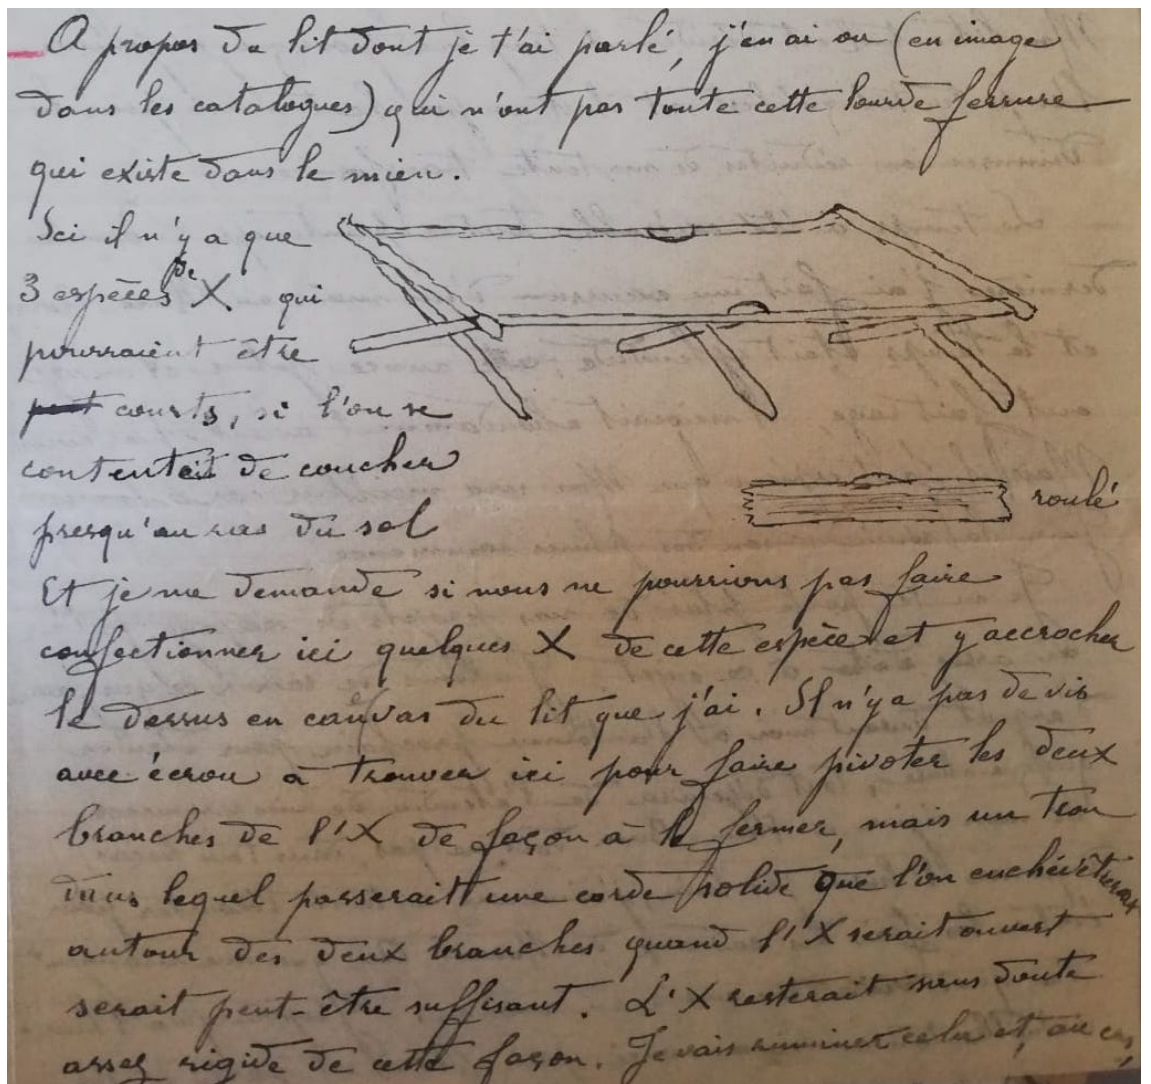 A propos du lit dont je t'ai parlé, j'en ai vu (en image
dans les catalogues) qui n'ont pas toute cette lourde ferrure
qui existe dans le mien.
Ici il n'y a que
3 espèces de X qui
pourraient être
courts, si l'on se
contentait de coucher
presqu'au ras du sol
roulé
Et je me demande si nous ne pourrions pas faire
confectionner ici quelques X de cette espèce et y accrocher
le dessus en canvas du lit que j'ai. Il n'y a pas de vis
avec écrou à trouver ici pour faire pivoter les deux
branches de l'X de façon à le fermer, mais un trou
dans lequel passerait une corde solide que l'on enchevêtrerait
autour des deux branches quand l'X serait ouvert
serait peut-être suffisant. L'X resterait sans doute
assez rigide de cette façon. Je vais ruminer cela et, au cas,